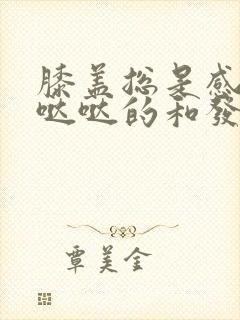 膝盖总是感
哒哒的和發
覃美金